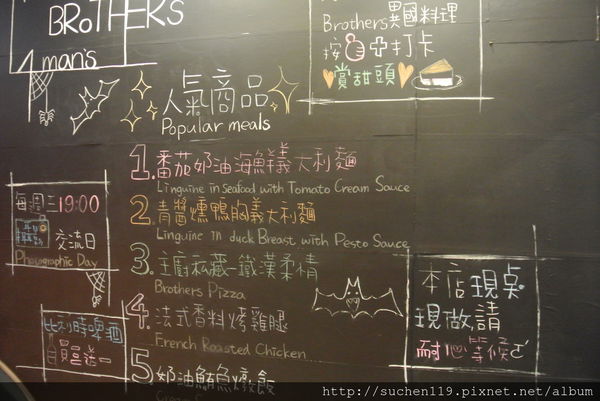 BROTHERS
4 man's
Brothers異國料理
按 打卡
賞甜頭
人氣商品
Popular meals
1.番茄奶油海鮮義大利麵
Linguine in seafood with Tomato Cream Sauce
2.青醬燻鴨胸義大利麵
Linguine in duck Breast with Pesto Sauce
3.主廚私藏-鐵漢柔情
Brothers Pizza
4.法式香料烤雞腿
French Roasted Chicken
5.奶油鮪魚燉飯
每週三19:00
交流日
Photographic Day
比利時啤酒
買三送一
本店現桌
現做請
耐心等候
http://suchen119.pixnet.net/album